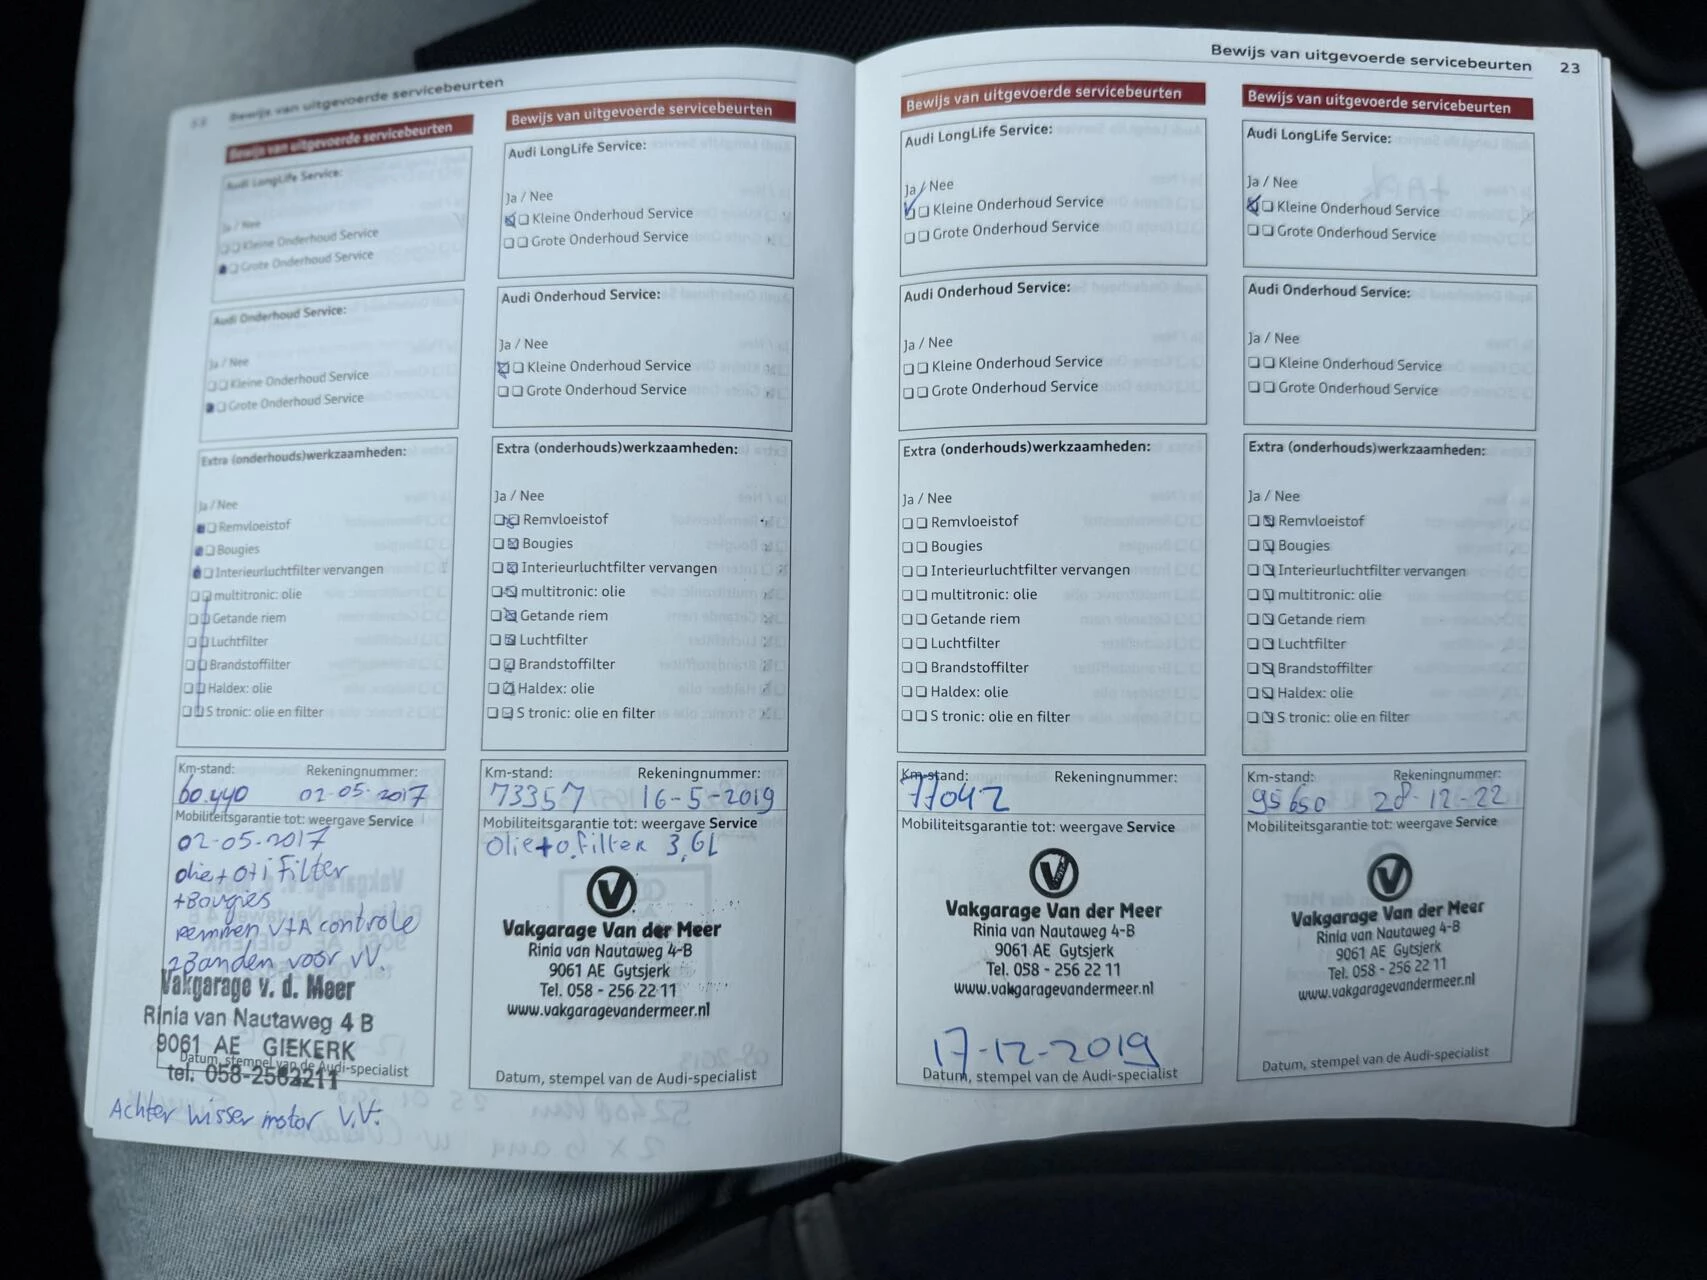 Bewijs van uitgevoerde servicebeurten
Bewijs van uitgevoerde servicebeurten
Audi LongLife Service:
Ja / Nee
Kleine Onderhoud Service
Grote Onderhoud Service
Audi Onderhoud Service:
Ja / Nee
Kleine Onderhoud Service
Grote Onderhoud Service
Extra (onderhouds)werkzaamheden:
Ja / Nee
Remvloeistof
Bougies
Interieurluchtfilter vervangen
multitronic: olie
Getande riem
Luchtfilter
Brandstoffilter
Haldex: olie
S tronic: olie en filter
Km-stand: Rekeningnummer:
60.440 02-05-2017
Mobiliteitsgarantie tot: weergave Service
02-05-2017
olie + oli Filter
+Bougies
remmen V+A controle
2Banden voor VV.
Vakgarage v. d. Meer
Rinia van Nautaweg 4 B
9061 AE GIEKERK
Datum, stempel van de Audi-specialist
tel. 058-2562211
Achter wisser motor V.V.
Bewijs van uitgevoerde servicebeurten
Audi LongLife Service:
Ja / Nee
Kleine Onderhoud Service
Grote Onderhoud Service
Audi Onderhoud Service:
Ja / Nee
Kleine Onderhoud Service
Grote Onderhoud Service
Extra (onderhouds)werkzaamheden:
Ja / Nee
Remvloeistof
Bougies
Interieurluchtfilter vervangen
multitronic: olie
Getande riem
Luchtfilter
Brandstoffilter
Haldex: olie
S tronic: olie en filter
Km-stand: Rekeningnummer:
73357 16-5-2019
Mobiliteitsgarantie tot: weergave Service
olie+o.filter 3,6L
V
Vakgarage Van der Meer
Rinia van Nautaweg 4-B
9061 AE Gytsjerk
Tel. 058 - 256 22 11
www.vakgaragevandermeer.nl
Datum, stempel van de Audi-specialist
Bewijs van uitgevoerde servicebeurten 23
Bewijs van uitgevoerde servicebeurten
Audi LongLife Service:
Ja / Nee
Kleine Onderhoud Service
Grote Onderhoud Service
Audi Onderhoud Service:
Ja / Nee
Kleine Onderhoud Service
Grote Onderhoud Service
Extra (onderhouds)werkzaamheden:
Ja / Nee
Remvloeistof
Bougies
Interieurluchtfilter vervangen
multitronic: olie
Getande riem
Luchtfilter
Brandstoffilter
Haldex: olie
S tronic: olie en filter
Km-stand: Rekeningnummer:
77042
Mobiliteitsgarantie tot: weergave Service
V
Vakgarage Van der Meer
Rinia van Nautaweg 4-B
9061 AE Gytsjerk
Tel. 058 - 256 22 11
www.vakgaragevandermeer.nl
17-12-2019
Datum, stempel van de Audi-specialist
Bewijs van uitgevoerde servicebeurten
Audi LongLife Service:
Ja / Nee
Kleine Onderhoud Service
Grote Onderhoud Service
Audi Onderhoud Service:
Ja / Nee
Kleine Onderhoud Service
Grote Onderhoud Service
Extra (onderhouds)werkzaamheden:
Ja / Nee
Remvloeistof
Bougies
Interieurluchtfilter vervangen
multitronic: olie
Getande riem
Luchtfilter
Brandstoffilter
Haldex: olie
S tronic: olie en filter
Km-stand: Rekeningnummer:
95650 28-12-22
Mobiliteitsgarantie tot: weergave Service
V
Vakgarage Van der Meer
Rinia van Nautaweg 4-B
9061 AE Gytsjerk
Tel. 058 - 256 22 11
www.vakgaragevandermeer.nl
Datum, stempel van de Audi-specialist